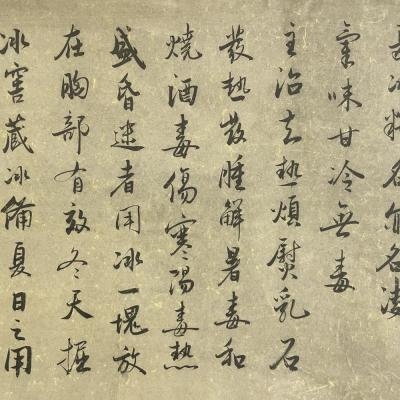 冰釋名亦名凌
氣味甘冷無毒
主治去熱煩熨乳石
發熱散腫解暑毒和
燒酒毒傷寒陽毒熱
盛昏迷者用冰一塊放
在胸部有效冬天掘
冰窖藏冰備夏日之用